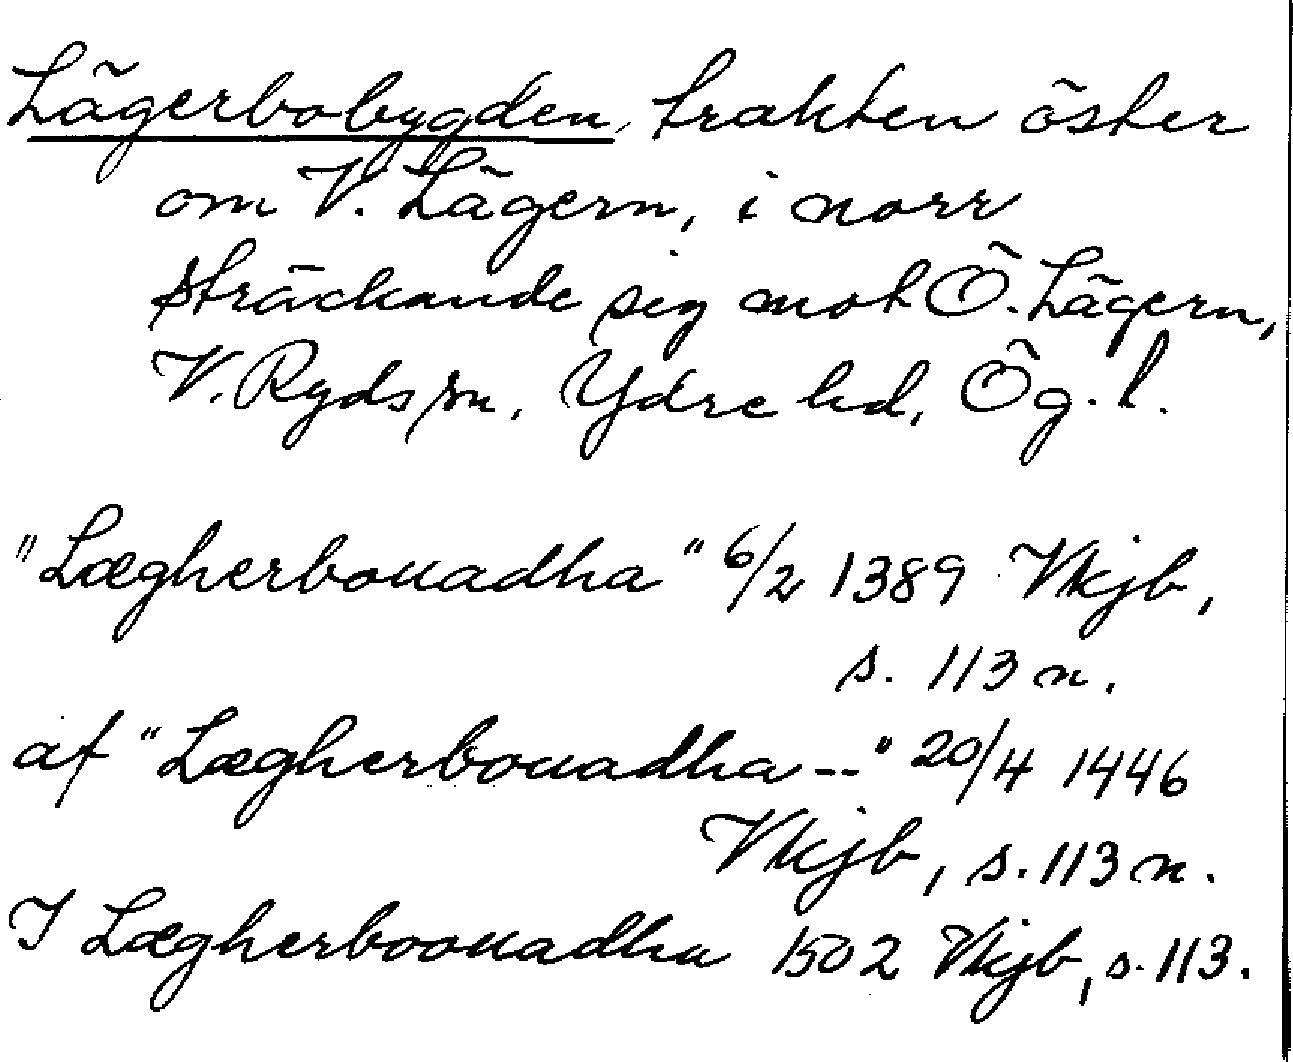 Lägerbobygden, trakten öster
om V. Lägern, i norr
sträckande sig mot Ö. Lägern,
V. Ryds sn, Ydre hd, Ög. l.
"Lægherbouadha" 6/2 1389 Vkjb,
s. 113 n.
af "Lægherbouadha--" 20/4 1446
Vkjb, s. 113 n.
I Lægherboouadhu 1502 Vkjb, s. 113.